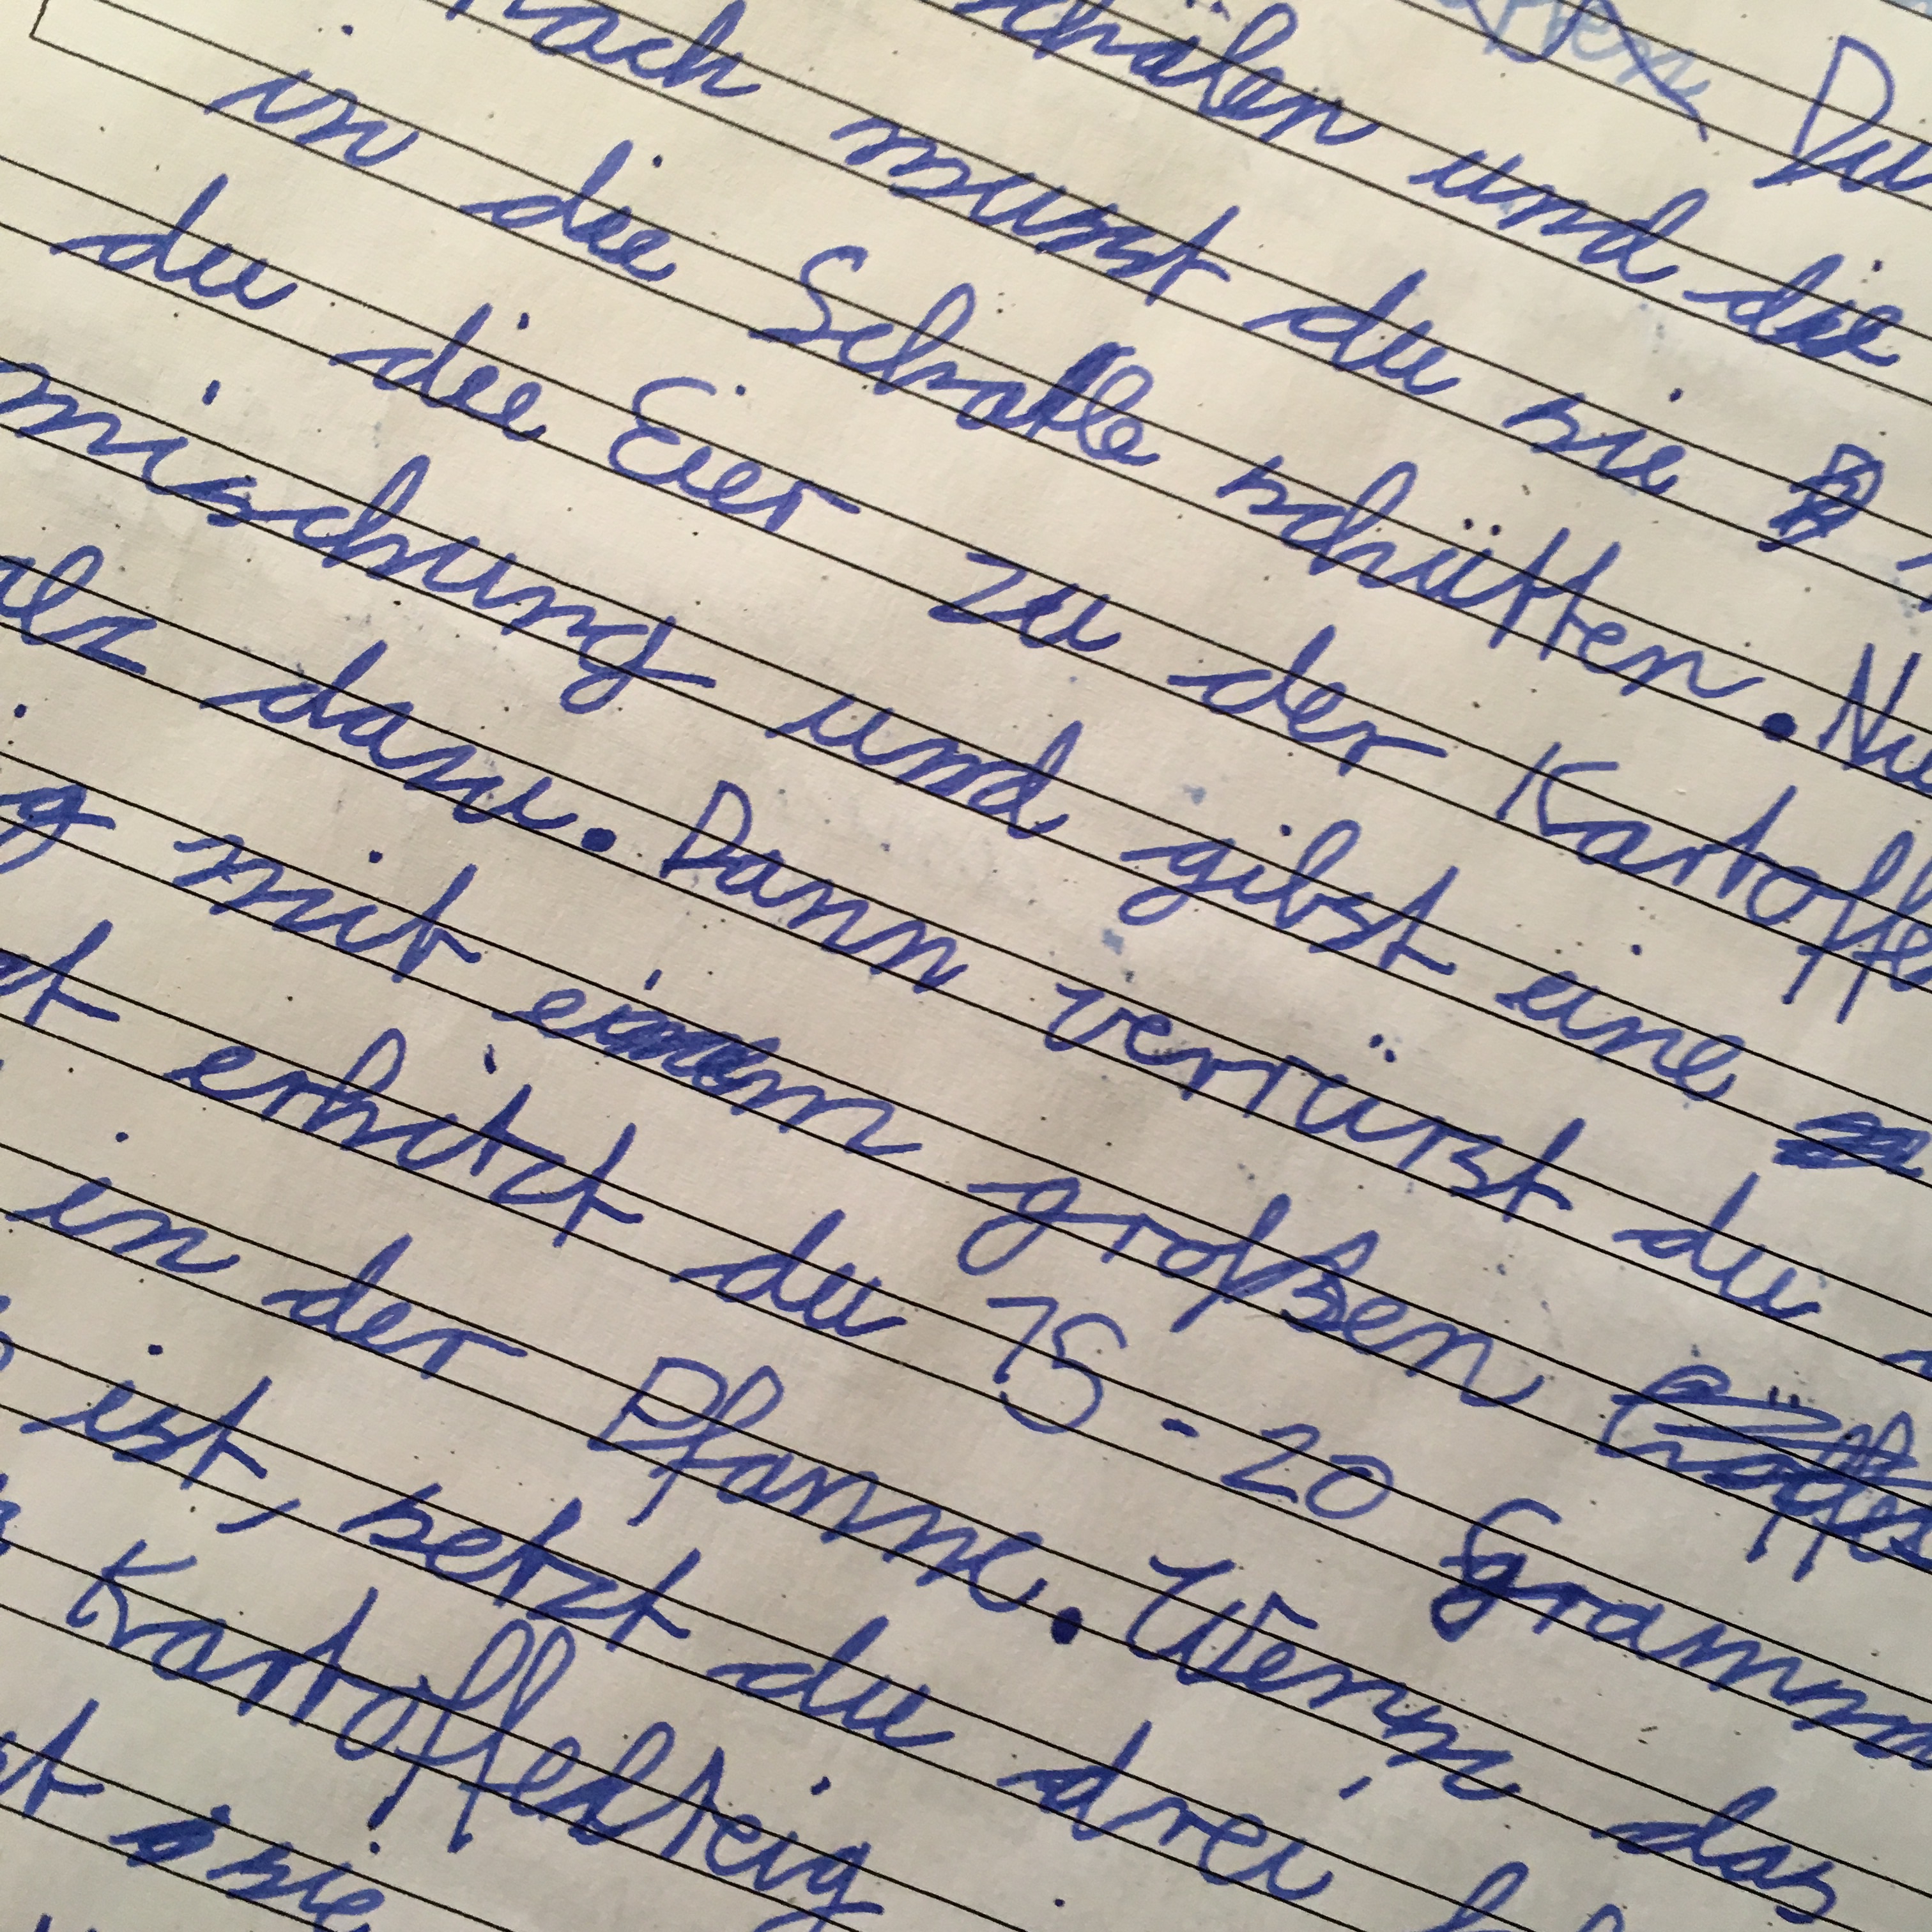 Du
schälen und die
nach munst du sie
in die Schalle schütten. Nu
du die Eier zu der Kartoffe
mischung und gibst eine
alz danu. Dann verrürst du
g mit einem großen
st erhitzt du 15-20 Gramm
in der Pfanne. Wenn das
ist, setzt du drei
Kartoffelteig
st sie